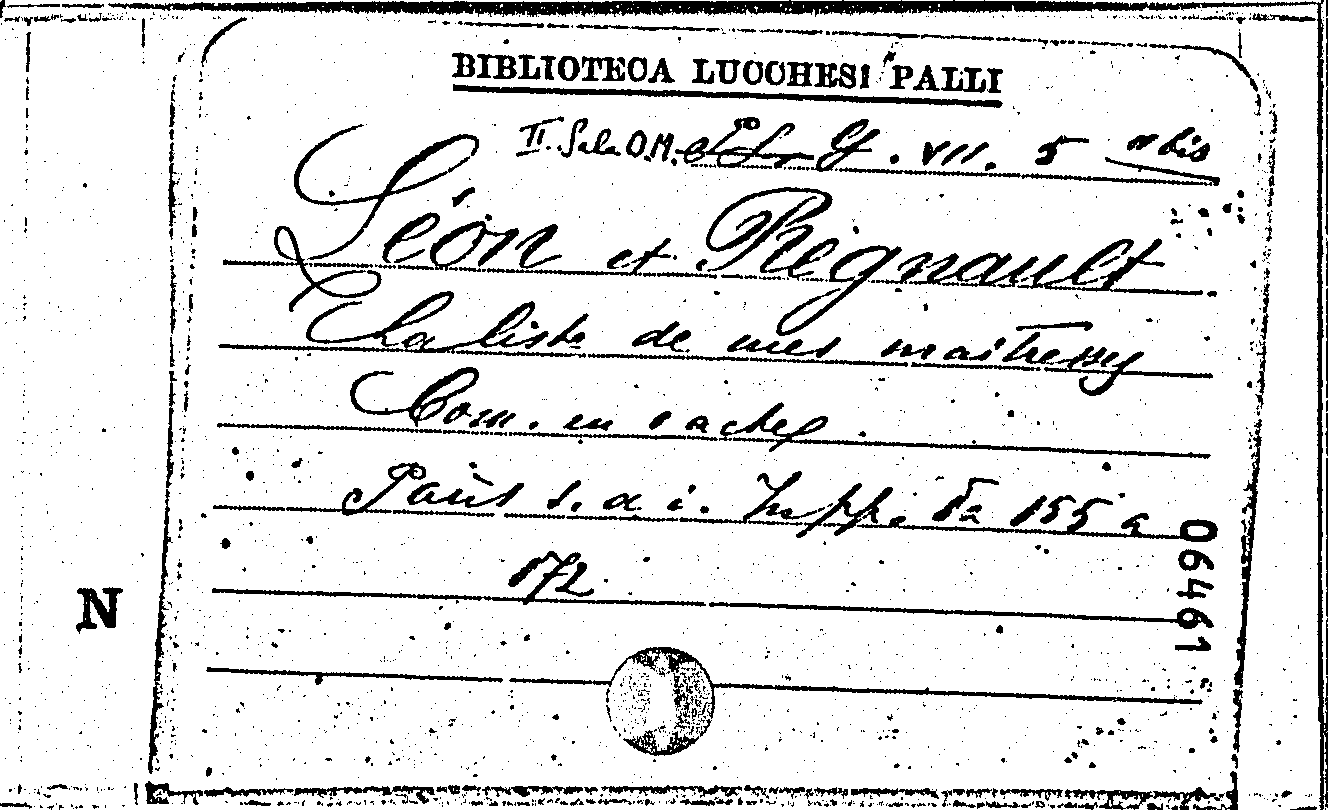 BIBLIOTECA LUCCHESI PALLI
II. Sala O.M. VII. 5 bis
Léon et Régnault
La liste de mes maitresses
Com. en 1 acte
Paris s. d. i. In pp. da 155 a
172
06461
N